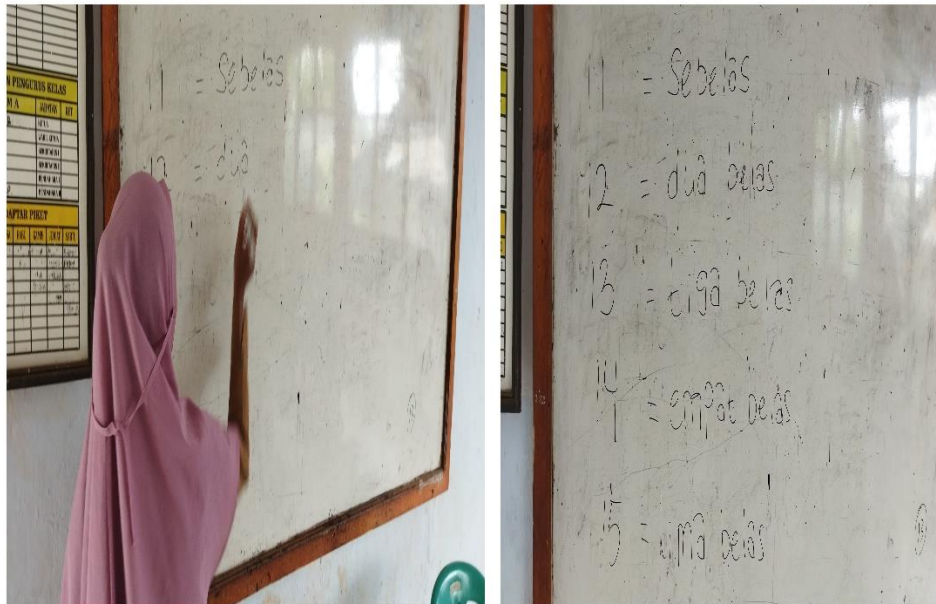 N PENGURUS KELAS
DAFTAR PIKET
11 = Sebelas
12 = dua
11 = Sebelas
12 = dua belas
13 = tiga belas
14 = empat belas
15 = lima belas